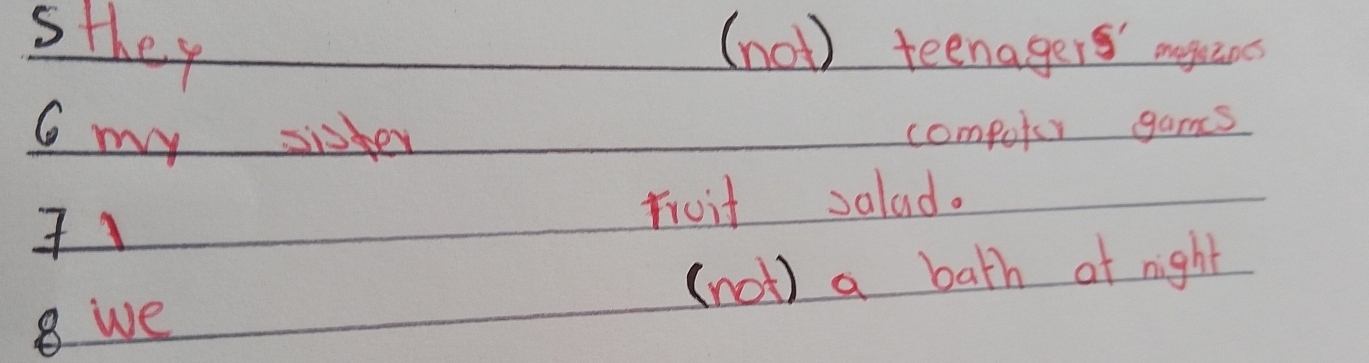 5 they (not) teenagers' magazines
6 my sister computer games
7 I fruit salad.
8 we (not) a bath at night